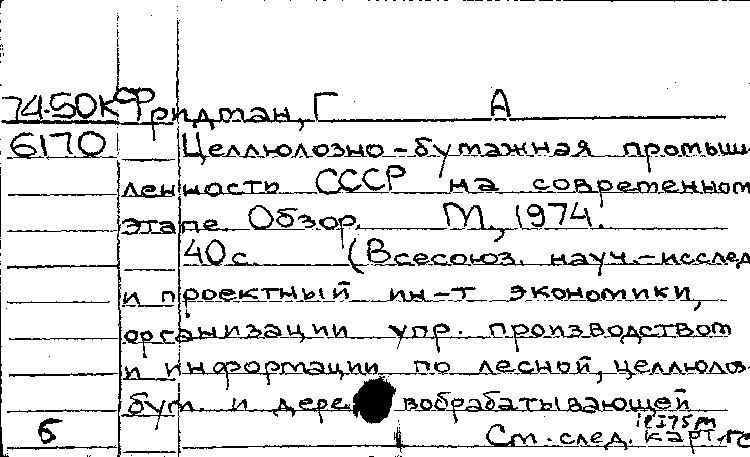 74-50кф Фридман, Г А
6170 Целлюлозно-бумажная промыш
ленность СССР на современном
этапе. Обзор. М., 1974.
40с. (Всесоюз. науч.-исслед
и проектный ин-т экономики,
организации упр. производством
и информации по лесной, целлюлоз
бум. и дере вобрабатывающей
б См. след. карт.